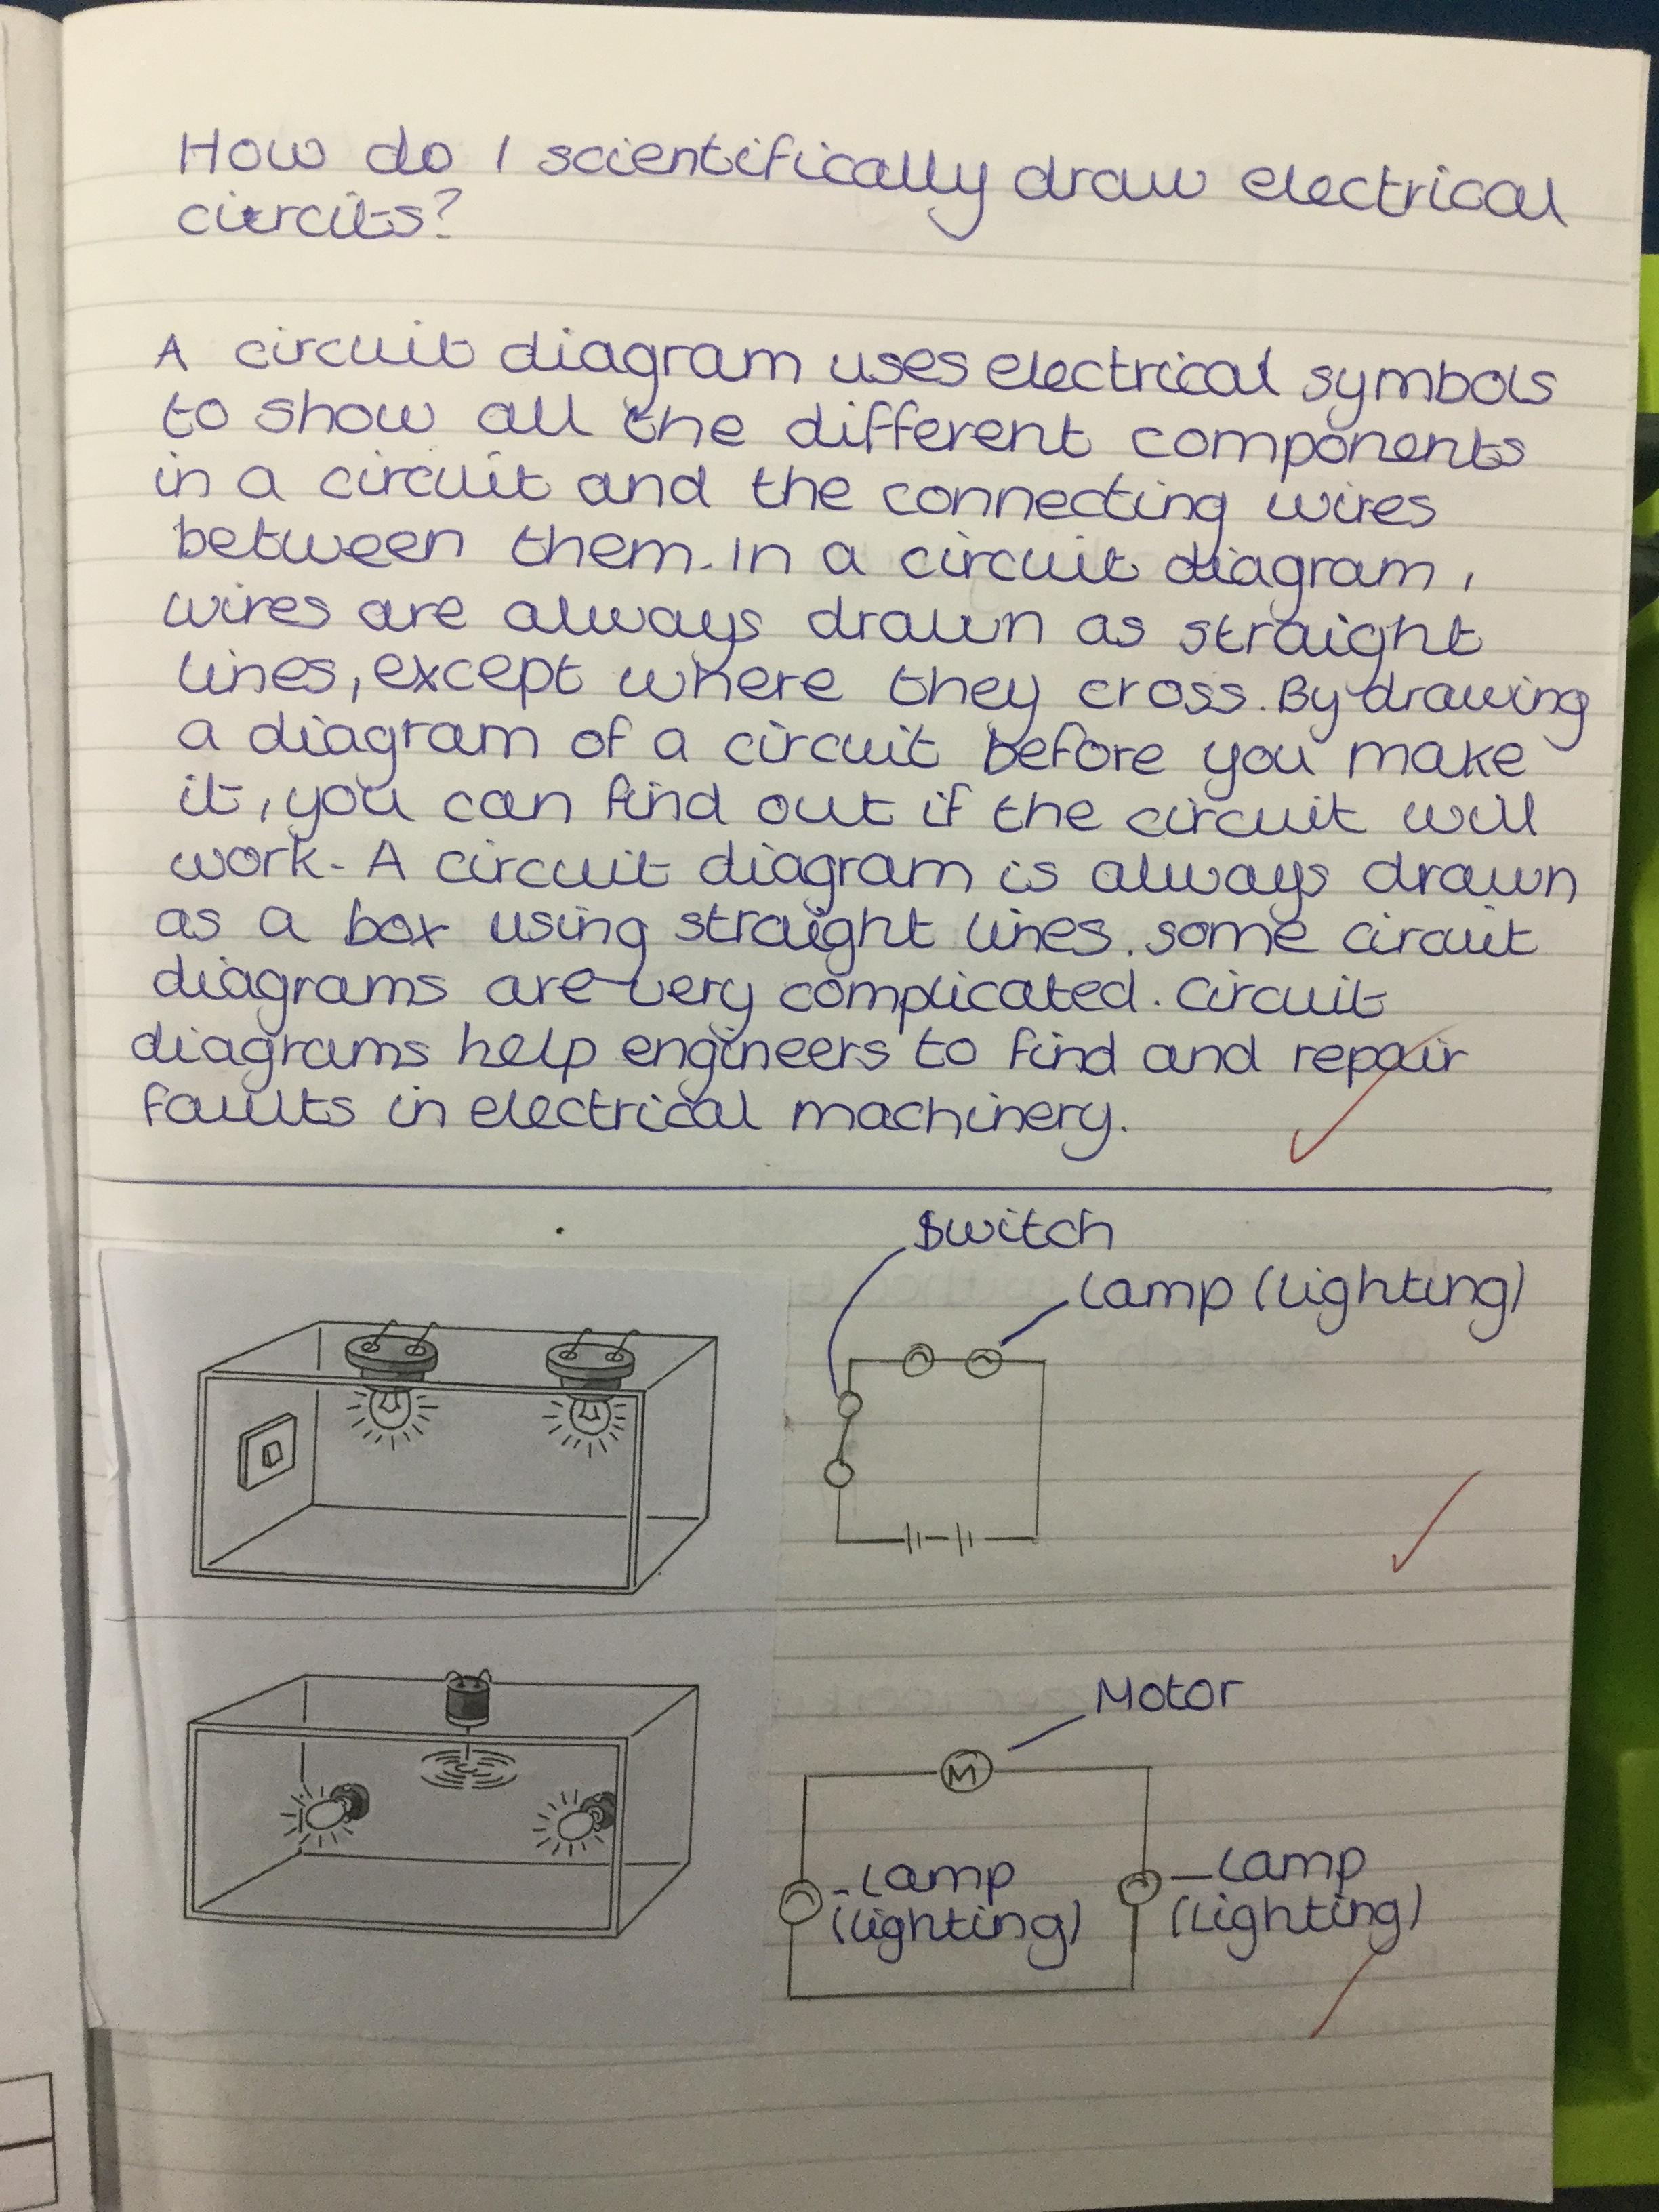 How do I scientifically draw electrical
ciercits?
A circuit diagram uses electrical symbols
to show all the different components
in a circuit and the connecting wires
between them. In a circuit diagram,
wires are always drawn as straight
lines, except where they cross. By drawing
a diagram of a circuit before you make
it, you can find out if the circuit will
work. A circuit diagram is always drawn
as a box using straight lines. some circuit
diagrams are very complicated. Circuit
diagrams help engineers to find and repair
faults in electrical machinery.
Switch
Lamp (lighting)
Motor
M
Lamp
(lighting)
Lamp
(Lighting)